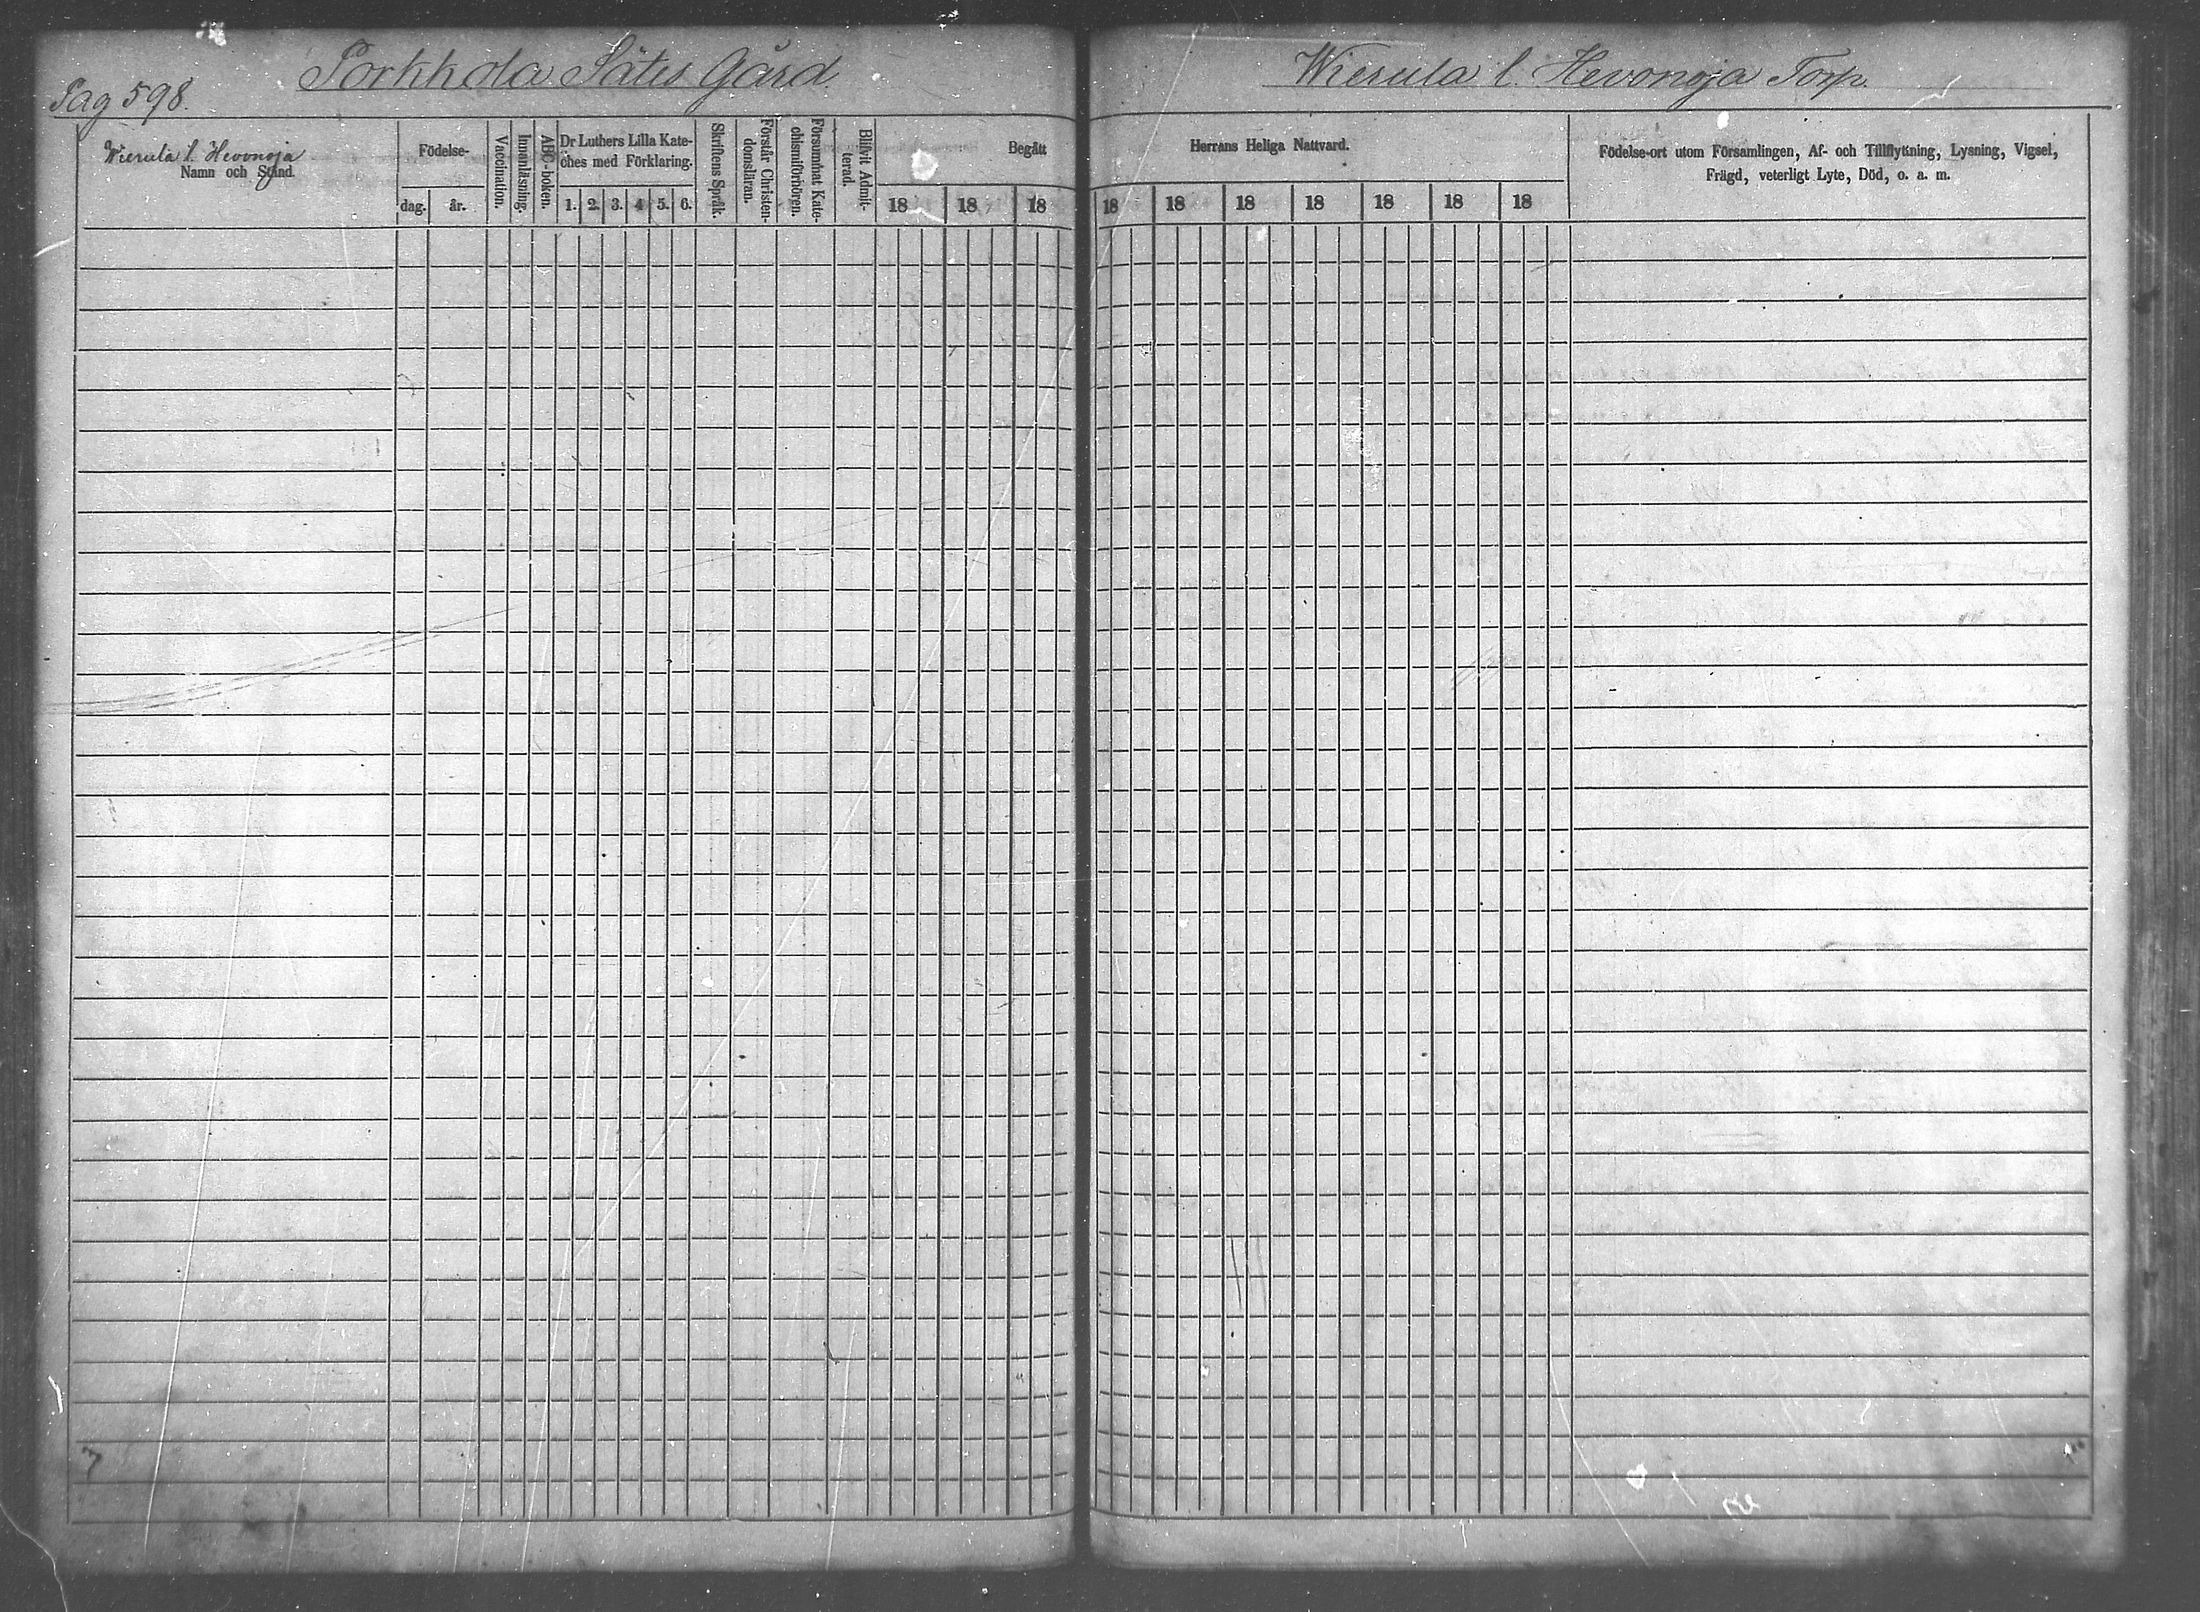 Pag 598.
Porkkola Sätes Gård.
Wierula l. Hevonoja Torp.
Wierula l. Hevonoja
Namn och Stånd.
Födelse-
dag.
år.
Vaccination.
Innanläsning.
ABC-boken.
Dr Luthers Lilla Kate-
ches med Förklaring.
1. 2. 3. 4 5. 6.
Skriftens Språk.
Förstår Christen-
domsläran.
Försummat Kate-
chismiförhören.
Blifvit Admit-
terad.
Begått
18 18 18
Herrans Heliga Nattvard.
18 18 18 18 18 18 18
Födelse-ort utom Församlingen, Af- och Tillflyttning, Lysning, Vigsel,
Frägd, veterligt Lyte, Död, o. a. m.